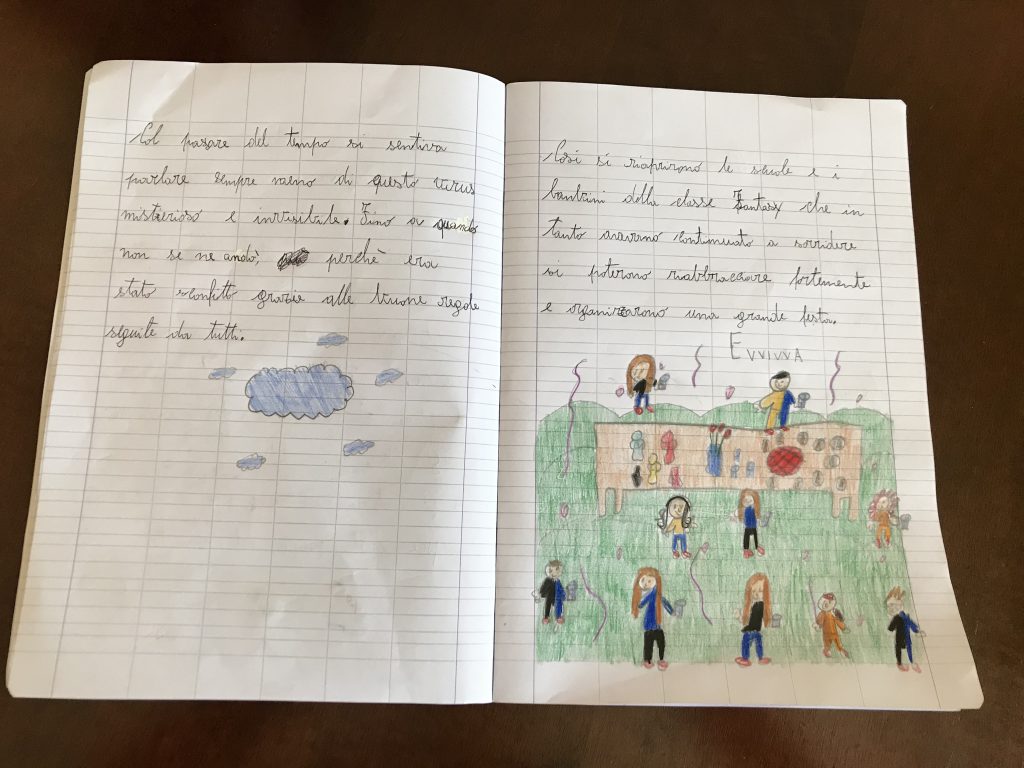 Col pasare del tempo si sentiva
parlare sempre meno di questo virus
misterioso e invisibile. Fino a quando
non se ne andò, perchè era
stato sconfitto grazie alle buone regole
seguite da tutti.
Così si riaprirono le scuole e i
bambini della classe Fantasy che in
tanto avevano continuato a sorridere
si poterono riabbracciare fortemente
e organizzarono una grande festa.
EVVIVVA